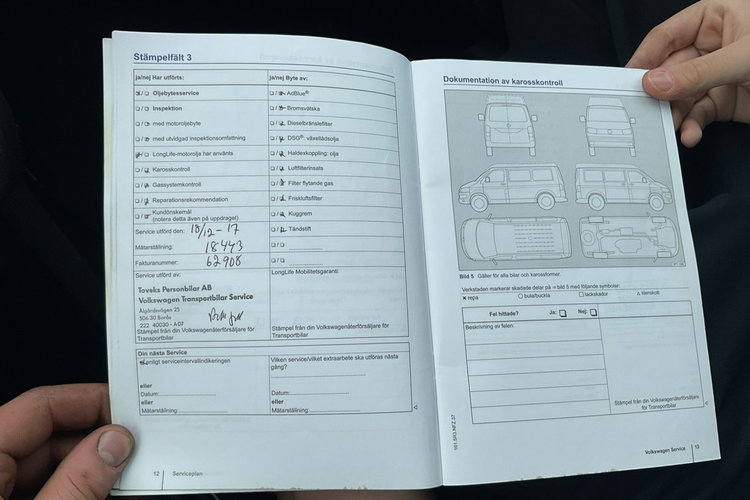 Stämpelfält 3
ja/nej Har utförts:
Oljebytesservice
Inspektion
med motoroljebyte
med utvidgad inspektionsomfattning
LongLife-motorolja har använts
Karosskontroll
Gassystemkontroll
Reparationsrekommendation
Kundönskemål
(notera detta även på uppdraget)
Service utförd den: 18/12-17
Mätarställning: 18443
Fakturanummer: 62908
Service utförd av:
Toveks Personbilar AB
Volkswagen Transportbilar Service
Älgårdsvägen 25
506 30 Borås
222 40030 - A07
Stämpel från din Volkswagenåterförsäljare för
Transportbilar
ja/nej Byte av:
AdBlue®
Bromsvätska
Dieselbränslefilter
DSG®: växellådsolja
Haldexkoppling: olja
Luftfilterinsats
Filter flytande gas
Friskluftsfilter
Kuggrem
Tändstift
LongLife Mobilitetsgaranti
Stämpel från din Volkswagenåterförsäljare för
Transportbilar
Din nästa Service
enligt serviceintervallindikeringen
eller
Datum:
eller
Mätarställning:
Vilken service/vilket extraarbete ska utföras nästa
gång?
Datum:
eller
Mätarställning:
12 Serviceplan
Dokumentation av karosskontroll
Bild 5 Gäller för alla bilar och karossformer.
Verkstaden markerar skadade delar på ⇒ bild 5 med följande symboler:
× repa ○ bula/buckla □ lackskador △ stenskott
Fel hittade? Ja: Nej:
Beskrivning av felen:
Stämpel från din Volkswagenåterförsäljare
för Transportbilar
161.5R3.NFZ.57
Volkswagen Service 13